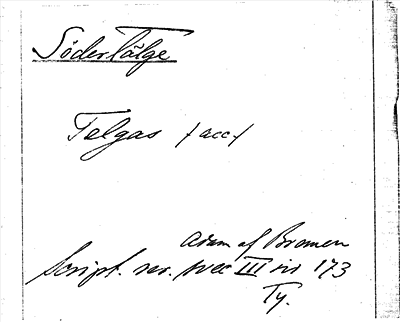 Södertälge
Telgas /acc./
Adam af Bremen
Script. rer. svec III 173
Ty.